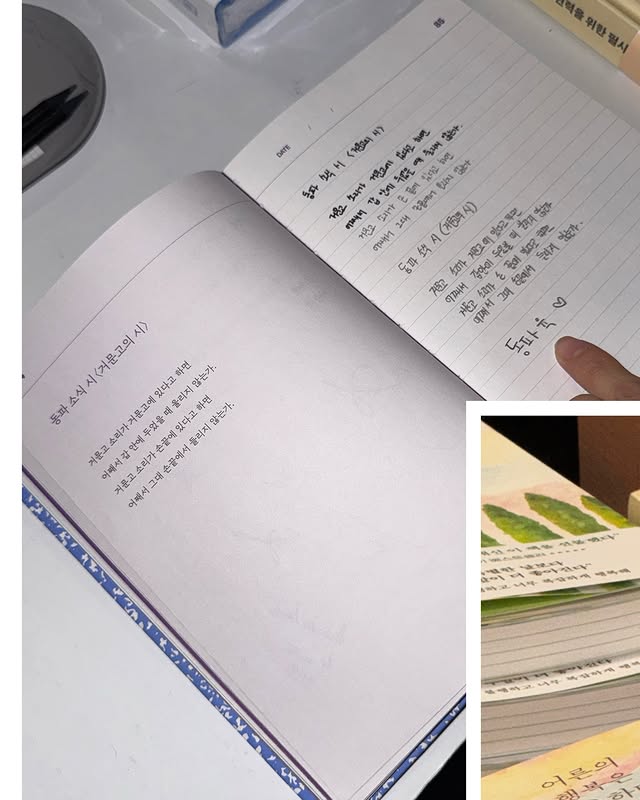 동파 소식 시 <거문고의 시>
거문고 소리가 거문고에 있다고 하면
어째서 갑 안에 두었을 때 울리지 않는가.
거문고 소리가 손끝에 있다고 하면
어째서 그대 손끝에서 들리지 않는가.
85
DATE / /
동파 소식 시 <거문고의 시>
거문고 소리가 거문고에 있다고 하면
어째서 갑 안에 두었을 때 울리지 않는가.
거문고 소리가 손끝에 있다고 하면
어째서 그대 손끝에서 들리지 않는가
동파 소식 시 (거문고의 시)
거문고 소리가 거문고에 있다고
어째서
거문고 소리가 손 끝에 있다고
어째서 그대 손끝에서 들리지 않는가.
동파육 ♡
위한 필사
이 책을 선물했다"
더 좋아진다"
어른의
행복은